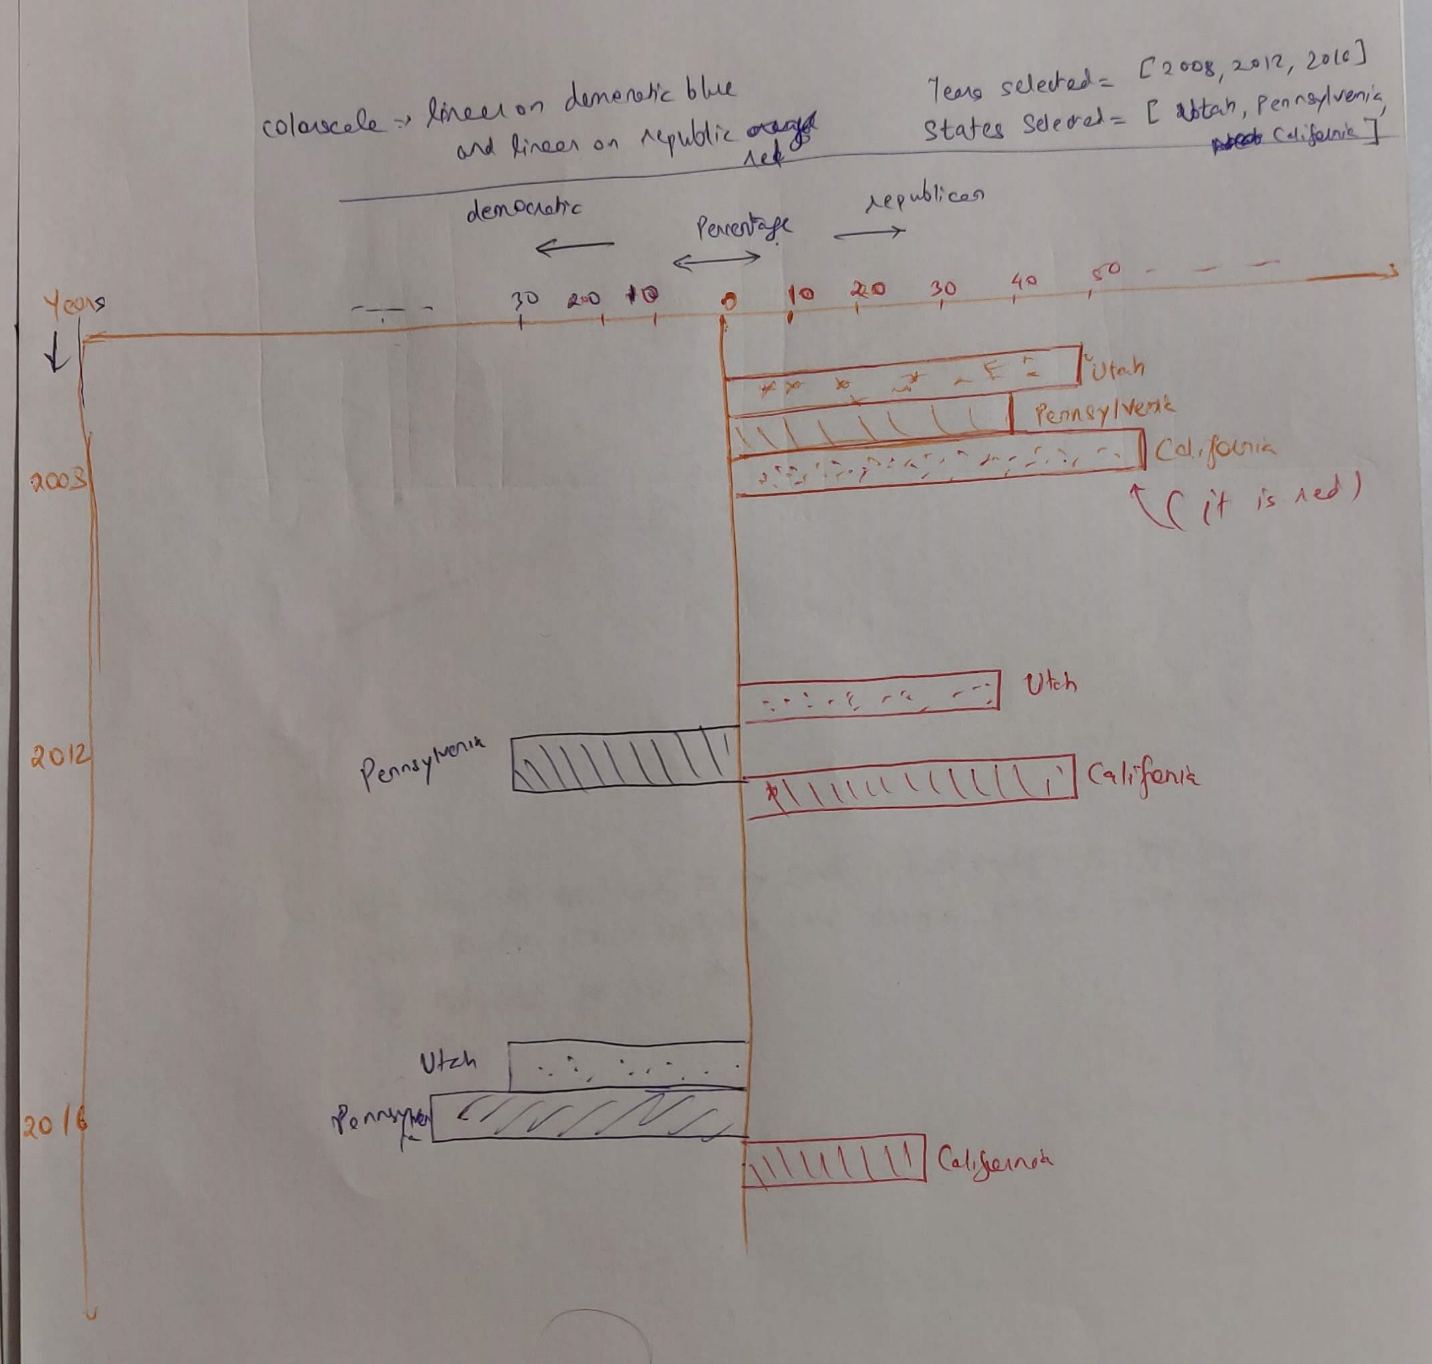 colorscale → linear on democratic blue
and linear on republic
red
Years selected = [2008, 2012, 2016]
States Selected = [ Utah, Pennsylvenia,
California ]
democratic
Percentage
republican
Years
30 20 10 0 10 20 30 40 50
Utah
Pennsylvenia
California
2008
( it is red )
Utah
Pennsylvenia
2012
Califonia
Utah
2016
California